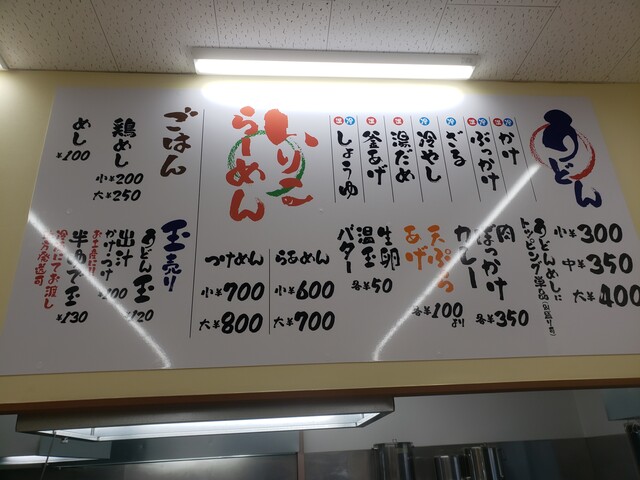 うどん
小¥300
中¥350
大¥400
うどんめしに
温冷
かけ
温冷
ぶっかけ
冷
ざる
冷
冷やし
温
湯だめ
温
釜あげ
温冷
しょうゆ
肉
ぶっかけ
カレー
各¥350
天ぷら
あげ
各¥100より
生卵
温玉
バター
各¥50
いりこ
らーめん
らぁめん
小¥600
大¥700
つけめん
小¥700
大¥800
ごはん
鶏めし
小¥200
大¥250
めし
¥100
玉売り
うどん玉
¥120
出汁
かけ・つけ
¥100
半ゆで玉
¥130